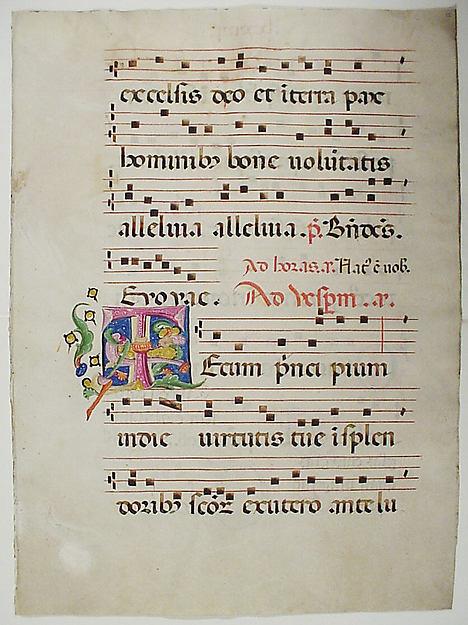 excelsis deo et iterra pax
hominibꝫ bone uolūtatis
alleluia alleluia . p̄. Bn̄dcs̄.
Ad horas. a. Nat᷒ ē uob.
Euouae. Ad vesp̄m . a.
Tecum p̄nci pium
indie uirtutis tue i splen
doribꝫ scōꝝ ex utero ante lu